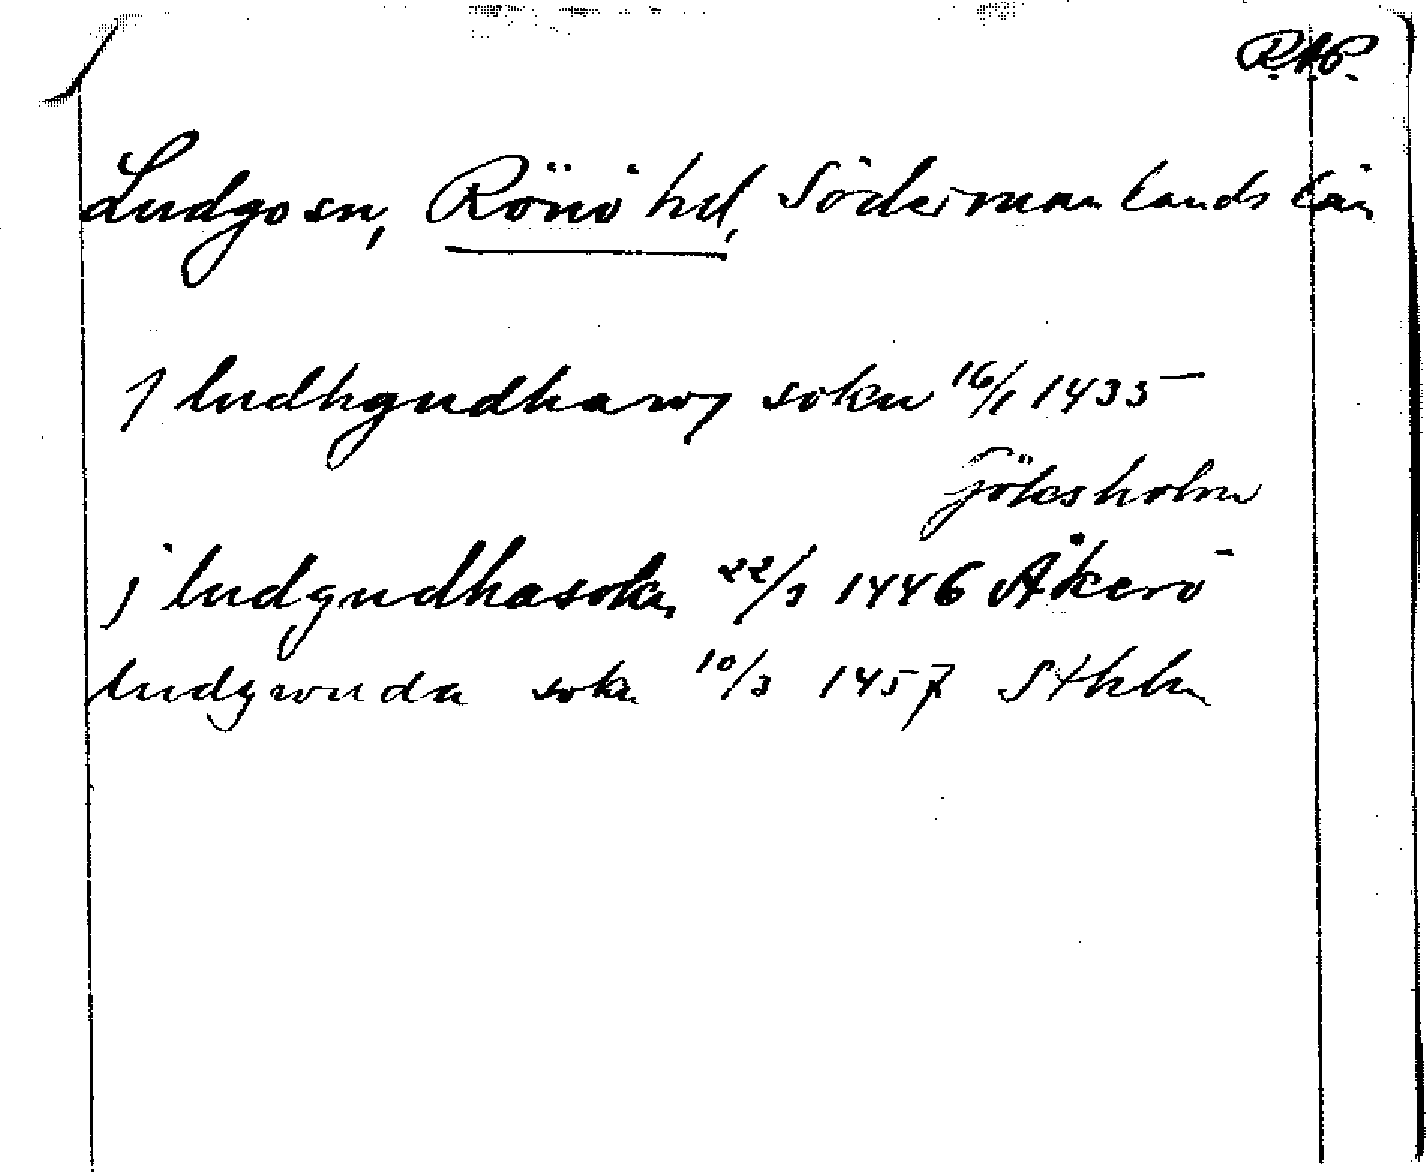 R.A.P.
Ludgo sn, Rönö hd, Södermanlands län
J ludhgudha soku 16/1 1435
Göksholm
j ludgudhasokn 22/3 1446 Åkerö
ludgwuda sokn 10/3 1457 Sthlm